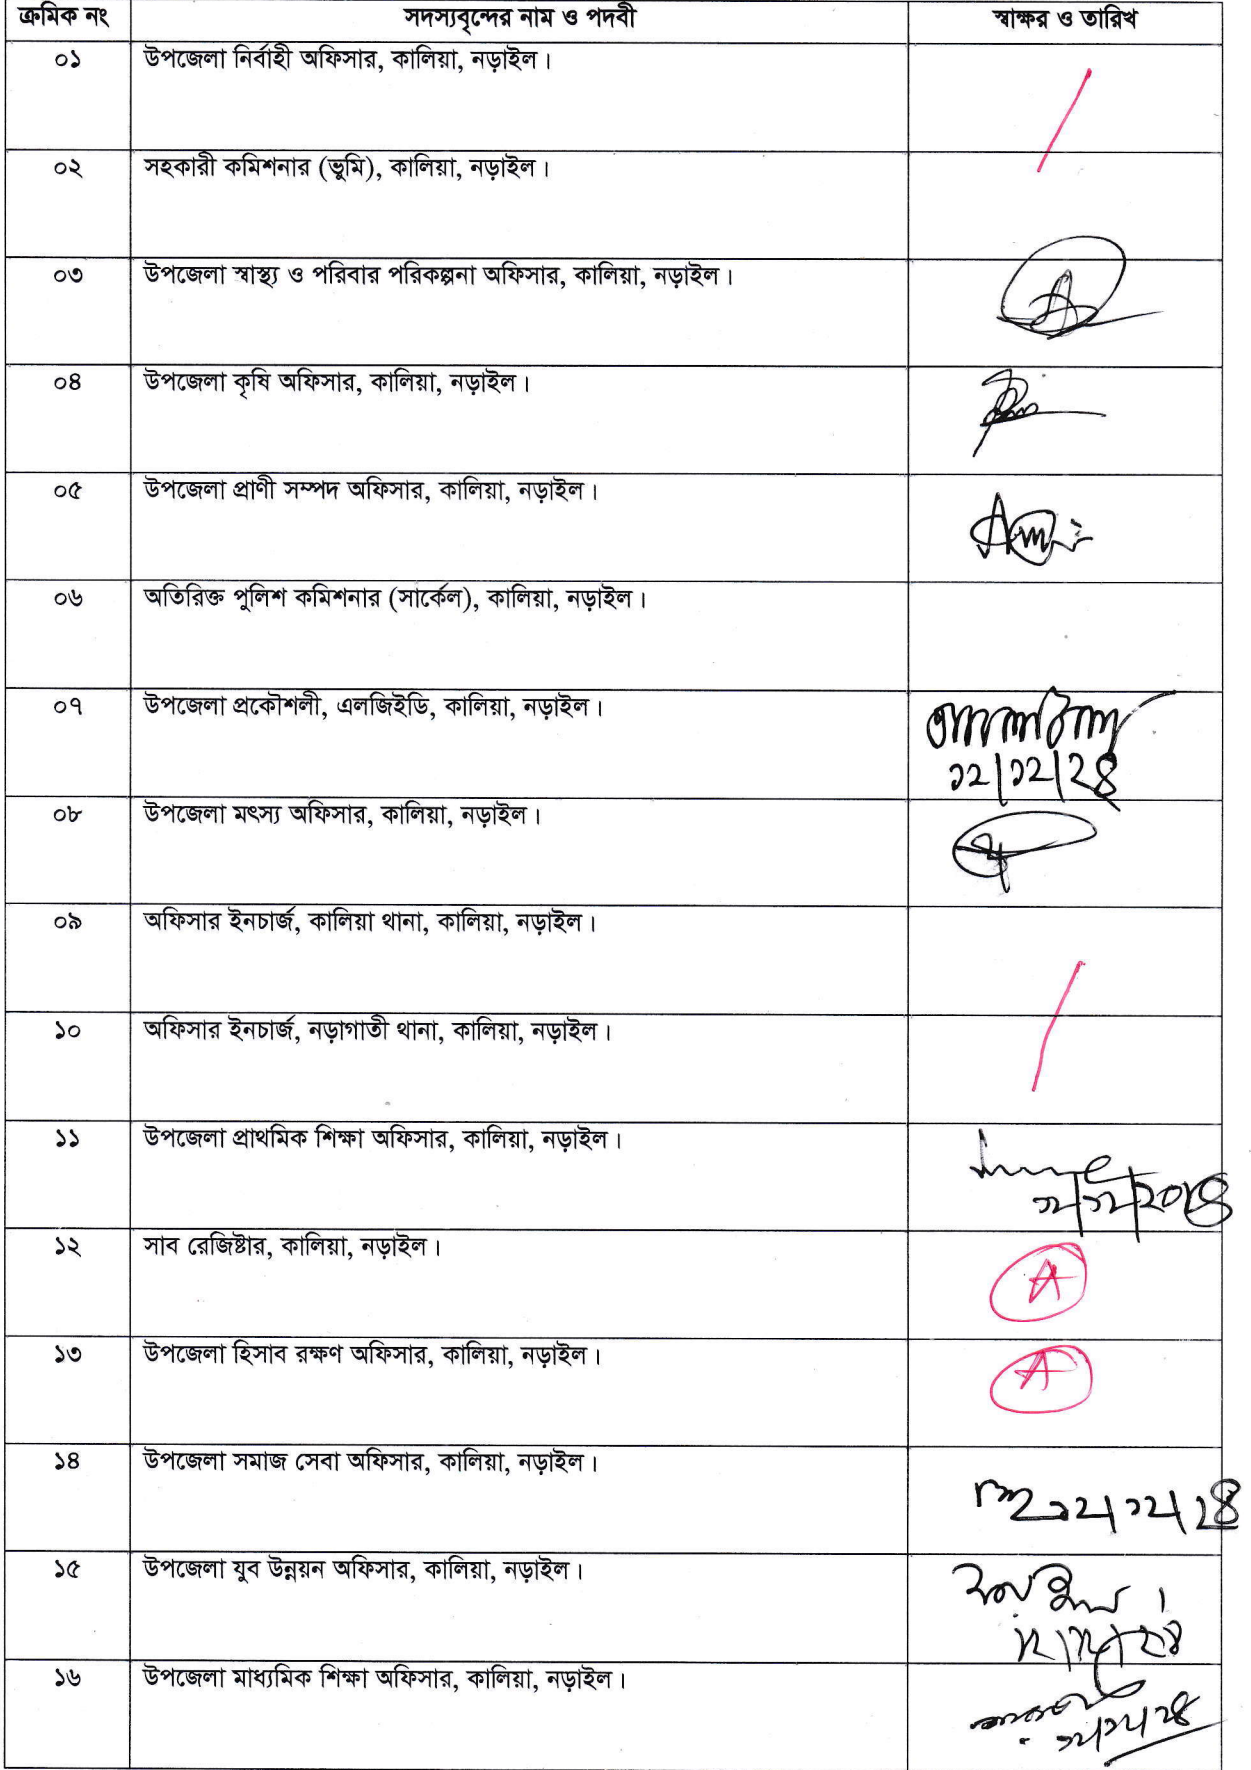 ক্রমিক নং সদস্যবৃন্দের নাম ও পদবী স্বাক্ষর ও তারিখ
০১ উপজেলা নির্বাহী অফিসার, কালিয়া, নড়াইল।
০২ সহকারী কমিশনার (ভুমি), কালিয়া, নড়াইল।
০৩ উপজেলা স্বাস্থ্য ও পরিবার পরিকল্পনা অফিসার, কালিয়া, নড়াইল।
০৪ উপজেলা কৃষি অফিসার, কালিয়া, নড়াইল।
০৫ উপজেলা প্রাণী সম্পদ অফিসার, কালিয়া, নড়াইল।
০৬ অতিরিক্ত পুলিশ কমিশনার (সার্কেল), কালিয়া, নড়াইল।
০৭ উপজেলা প্রকৌশলী, এলজিইডি, কালিয়া, নড়াইল।
১২/১২/২৪
০৮ উপজেলা মৎস্য অফিসার, কালিয়া, নড়াইল।
০৯ অফিসার ইনচার্জ, কালিয়া থানা, কালিয়া, নড়াইল।
১০ অফিসার ইনচার্জ, নড়াগাতী থানা, কালিয়া, নড়াইল।
১১ উপজেলা প্রাথমিক শিক্ষা অফিসার, কালিয়া, নড়াইল।
১২/১২/২০২৪
১২ সাব রেজিষ্টার, কালিয়া, নড়াইল।
A
১৩ উপজেলা হিসাব রক্ষণ অফিসার, কালিয়া, নড়াইল।
A
১৪ উপজেলা সমাজ সেবা অফিসার, কালিয়া, নড়াইল।
১২/১২/২৪
১৫ উপজেলা যুব উন্নয়ন অফিসার, কালিয়া, নড়াইল।
১২/১২/২৪
১৬ উপজেলা মাধ্যমিক শিক্ষা অফিসার, কালিয়া, নড়াইল।
১২/১২/২৪